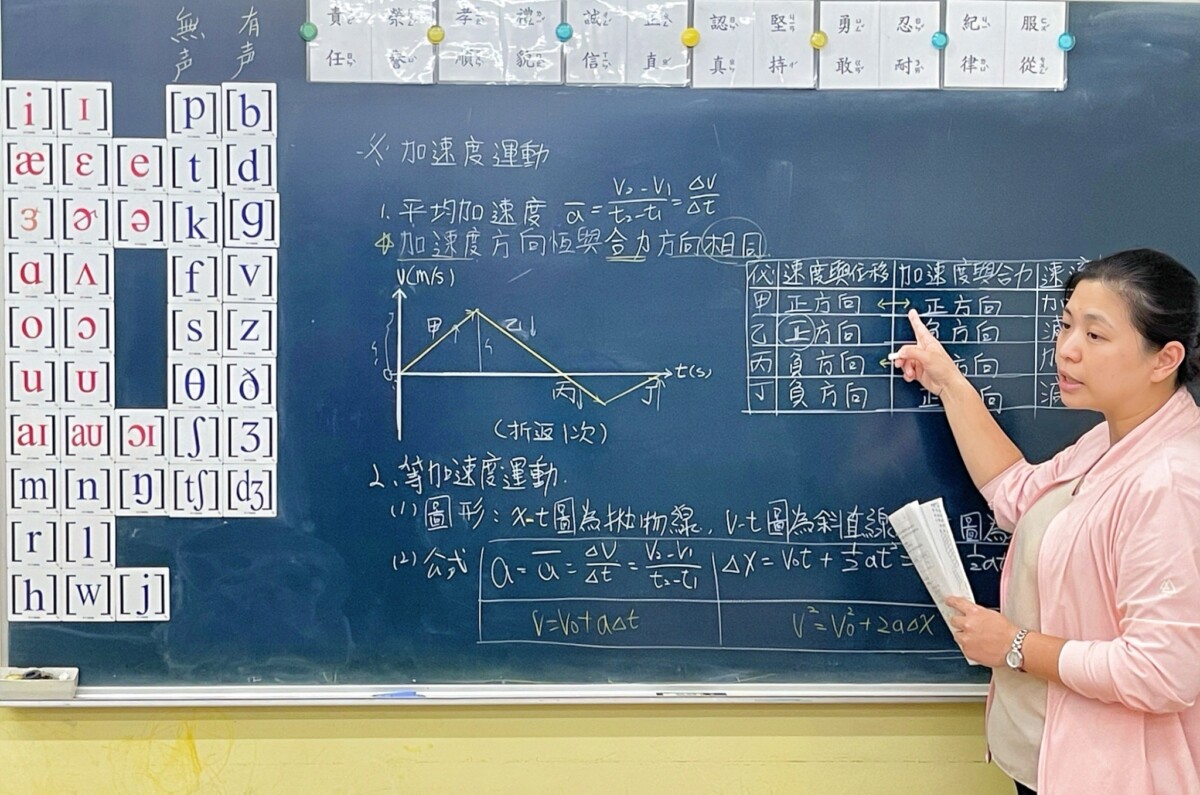 無声 有声
責任 榮譽 孝順 禮貌 誠信 正直 認真 堅持 勇敢 忍耐 紀律 服從
[i] [ɪ] [p] [b]
[æ] [ɛ] [e] [t] [d]
[ɝ] [ɚ] [ə] [k] [g]
[ɑ] [ʌ] [f] [v]
[o] [ɔ] [s] [z]
[u] [ʊ] [θ] [ð]
[aɪ] [aʊ] [ɔɪ] [ʃ] [ʒ]
[m] [n] [ŋ] [tʃ] [dʒ]
[r] [l]
[h] [w] [j]
加速度運動
1. 平均加速度 a̅ = (V₂-V₁)/(t₂-t₁) = ΔV/Δt
加速度方向恆與合力方向相同
V(m/s)
甲 乙
t(s)
丙 丁
(折返1次)
速度與位移 加速度與合力 速
甲 正方向 ↔ 正方向 加
乙 正方向 負方向 減
丙 負方向 方向 加
丁 負方向 正方向 減
2. 等加速度運動.
(1) 圖形: x-t圖為拋物線, V-t圖為斜直線 圖為
(2) 公式 a = a̅ = ΔV/Δt = (V₂-V₁)/(t₂-t₁) ΔX = V₀t + ½at² =
V=V₀+aΔt V²=V₀²+2aΔX